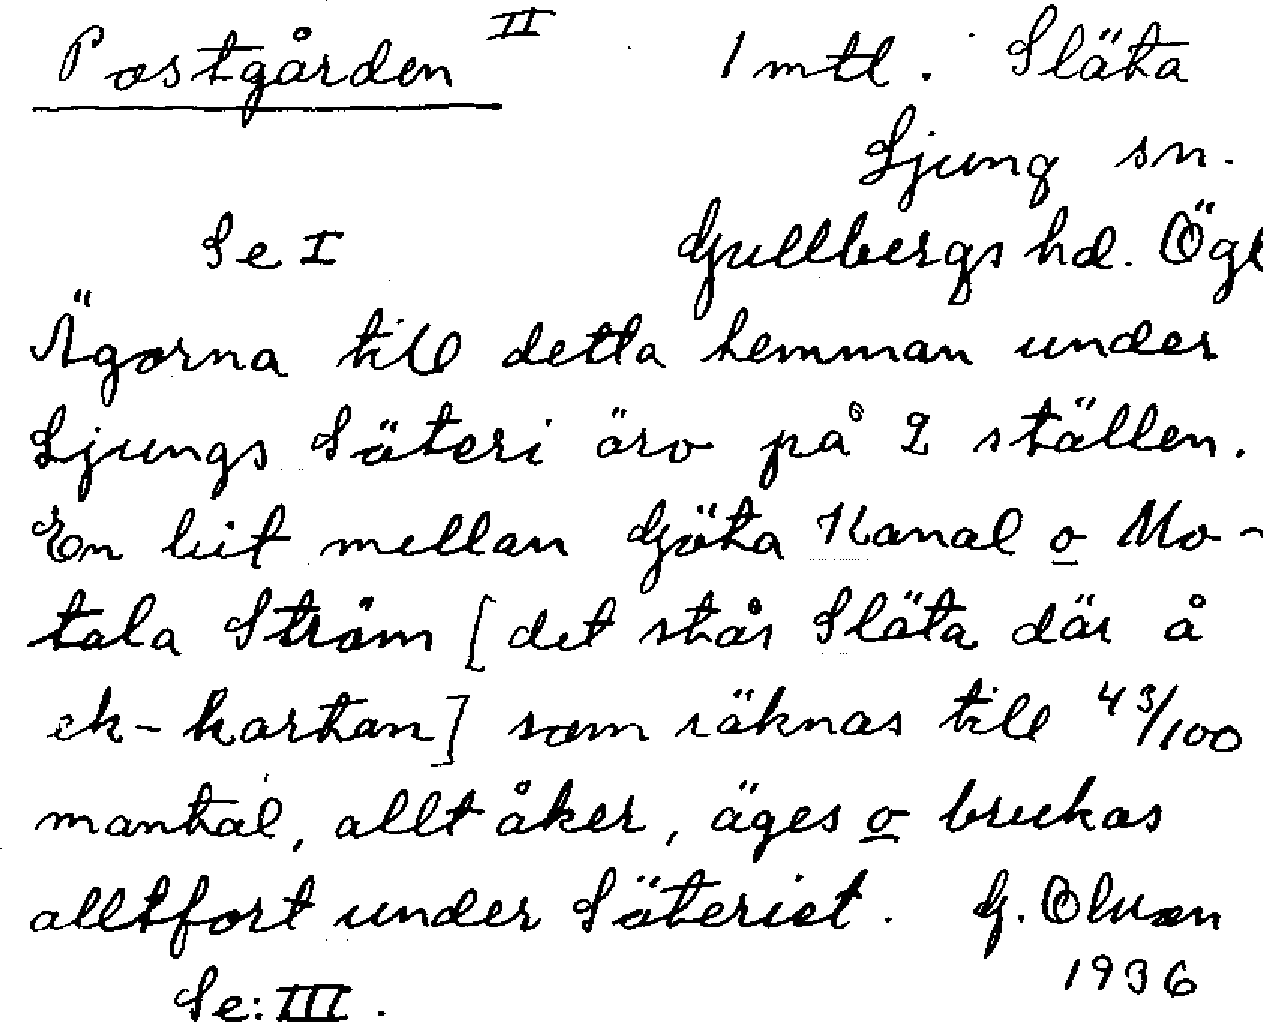 Postgården II 1 mtl. Släta
Ljung sn.
Se I Gullbergs hd. Ögl
Ägorna till detta hemman under
Ljungs Säteri äro på 2 ställen.
En bit mellan Göta Kanal o Mo-
tala Ström [det står Släta där å
ek-kartan] som räknas till 43/100
mantal, allt åker, äges o brukas
alltfort under Säteriet. G. Olsson
1936
Se: III.